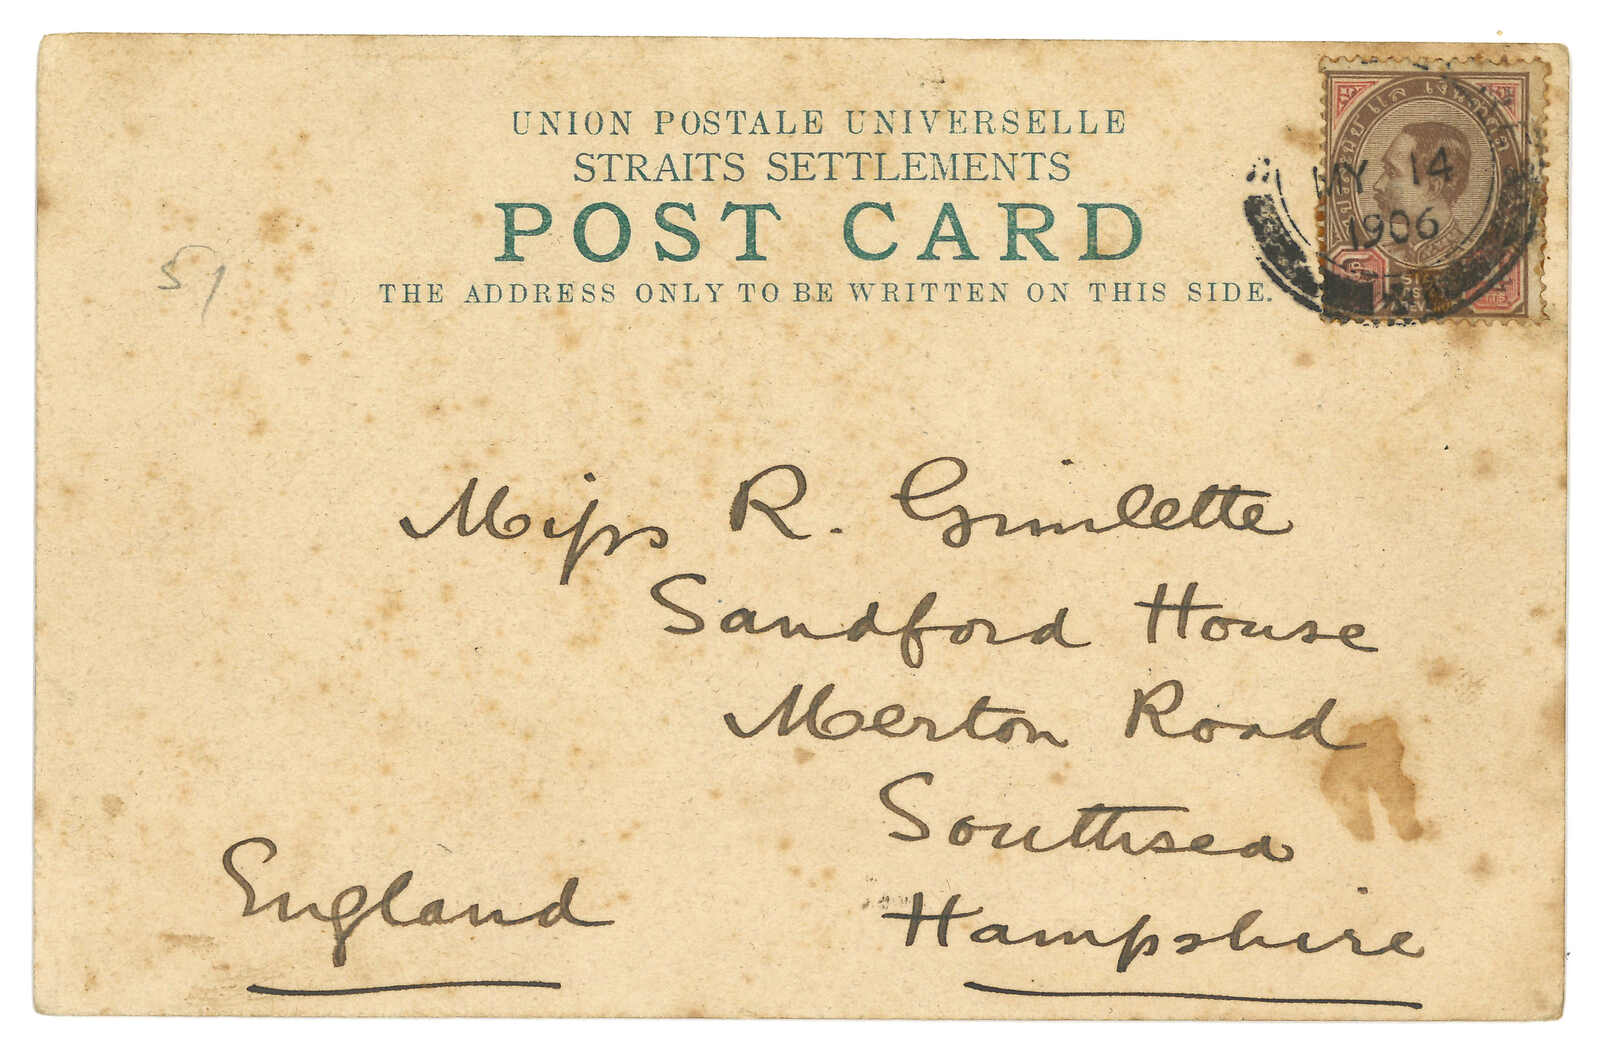 UNION POSTALE UNIVERSELLE
STRAITS SETTLEMENTS
POST CARD
THE ADDRESS ONLY TO BE WRITTEN ON THIS SIDE.
MY 14
1906
51
Miss R. Gimlette
Sandford House
Merton Road
Southsea
Hampshire
England